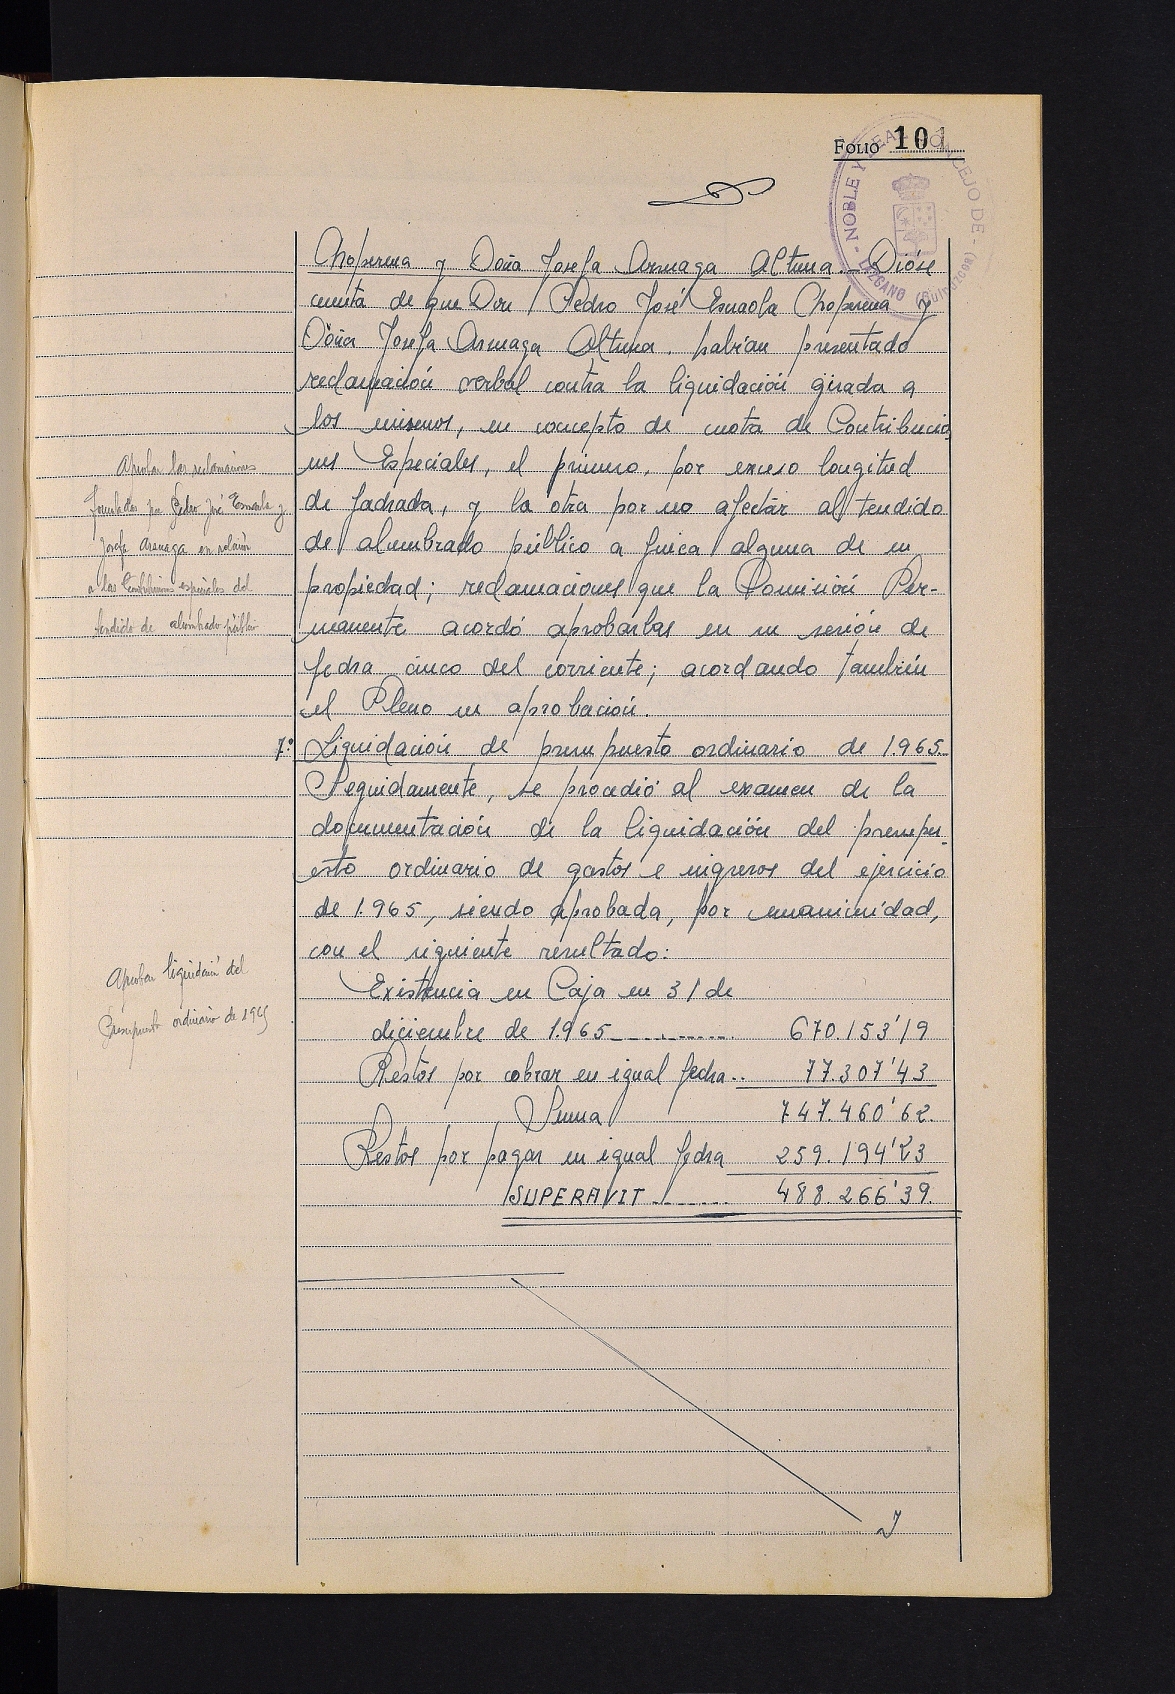 Folio 101
- NOBLE Y LEAL CONCEJO DE -
LAZCANO (GUIPUZCOA)
Choperena y Doña Josefa Arsuaga Altuna.- Dióse
cuenta de que Don Pedro José Esnaola Choperena y
Doña Josefa Arsuaga Altuna, habían presentado
reclamación verbal contra la liquidación girada a
los mismos, en concepto de cuota de Contribucio
nes Especiales, el primero, por exceso longitud
de fachada, y la otra por no afectar al tendido
de alumbrado público a finca alguna de su
propiedad; reclamaciones que la Comisión Per-
manente acordó aprobarlas en su sesión de
fecha cinco del corriente; acordando también
el Pleno su aprobación.
Aprobar las reclamaciones
formuladas por Pedro José Esnaola y
Josefa Arsuaga en relación
a las Contribuciones especiales del
tendido de alumbrado público
7.º Liquidación de presupuesto ordinario de 1.965.
Seguidamente, se procedió al examen de la
documentación de la liquidación del presupu-
esto ordinario de gastos e ingresos del ejercicio
de 1.965, siendo aprobada, por unanimidad,
con el siguiente resultado:
Aprobar liquidación del
Presupuesto ordinario de 1965
Existencia en Caja en 31 de
diciembre de 1.965 ---------- 670.153'19
Restos por cobrar en igual fecha.. 77.307'43
Suma 747.460'62.
Restos por pagar en igual fecha 259.194'23
SUPERAVIT ------- 488.266'39.